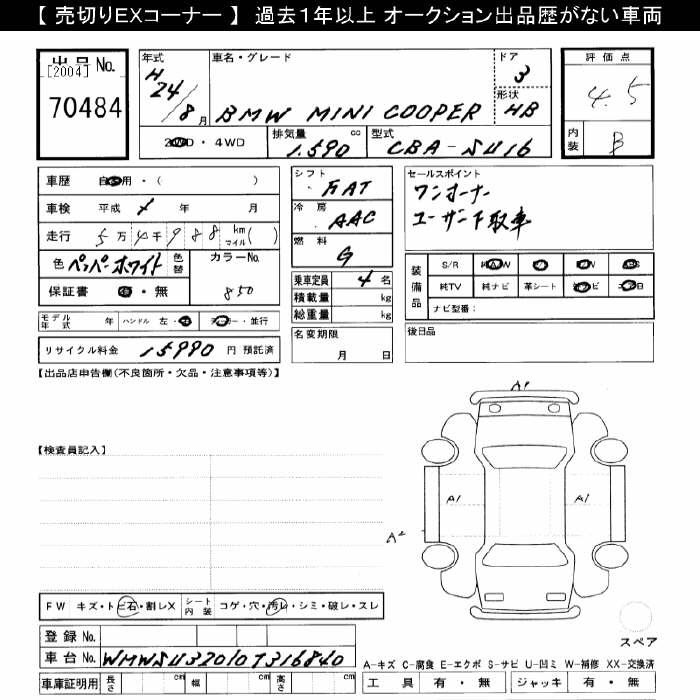 【 売切りEXコーナー 】 過去1年以上 オークション出品歴がない車両
出品 No.
[2004]
70484
年式
H
24/8月
車名・グレード
BMW MINI COOPER
ドア
3
形状
HB
評価点
4.5
内装
B
2WD・4WD
排気量
1.590 cc
型式
CBA-SU16
車歴 自家用・( )
車検 平成 年 月
走行 5万4千988 km マイル( )
色 ペッパーホワイト 色替 カラーNo.
850
保証書 有・無
モデル年式 年 ハンドル 左・右 ディーラー・並行
リサイクル料金 15990 円 預託済
シフト
FAT
冷房
AAC
燃料
G
乗車定員 4名
積載量 kg
総重量 kg
名変期限
月 日
セールスポイント
ワンオーナー
ユーザー下取車
装備品
S/R PS PW ABS
純TV 純ナビ 革シート
ナビ型番:
後日品
【出品店申告欄(不良箇所・欠品・注意事項等)】
【検査員記入】
A1
A1
A1
A2
FW キズ・トビ石・割レX シート内装 コゲ・穴・汚レ・シミ・破レ・スレ
登録 No.
車台 No. WMWSU32010T316840
車庫証明用 長さ cm 幅 cm 高さ cm
スペア
A-キズ C-腐食 E-エクボ S-サビ U-凹ミ W-補修 XX-交換済
工具 有・無 ジャッキ 有・無